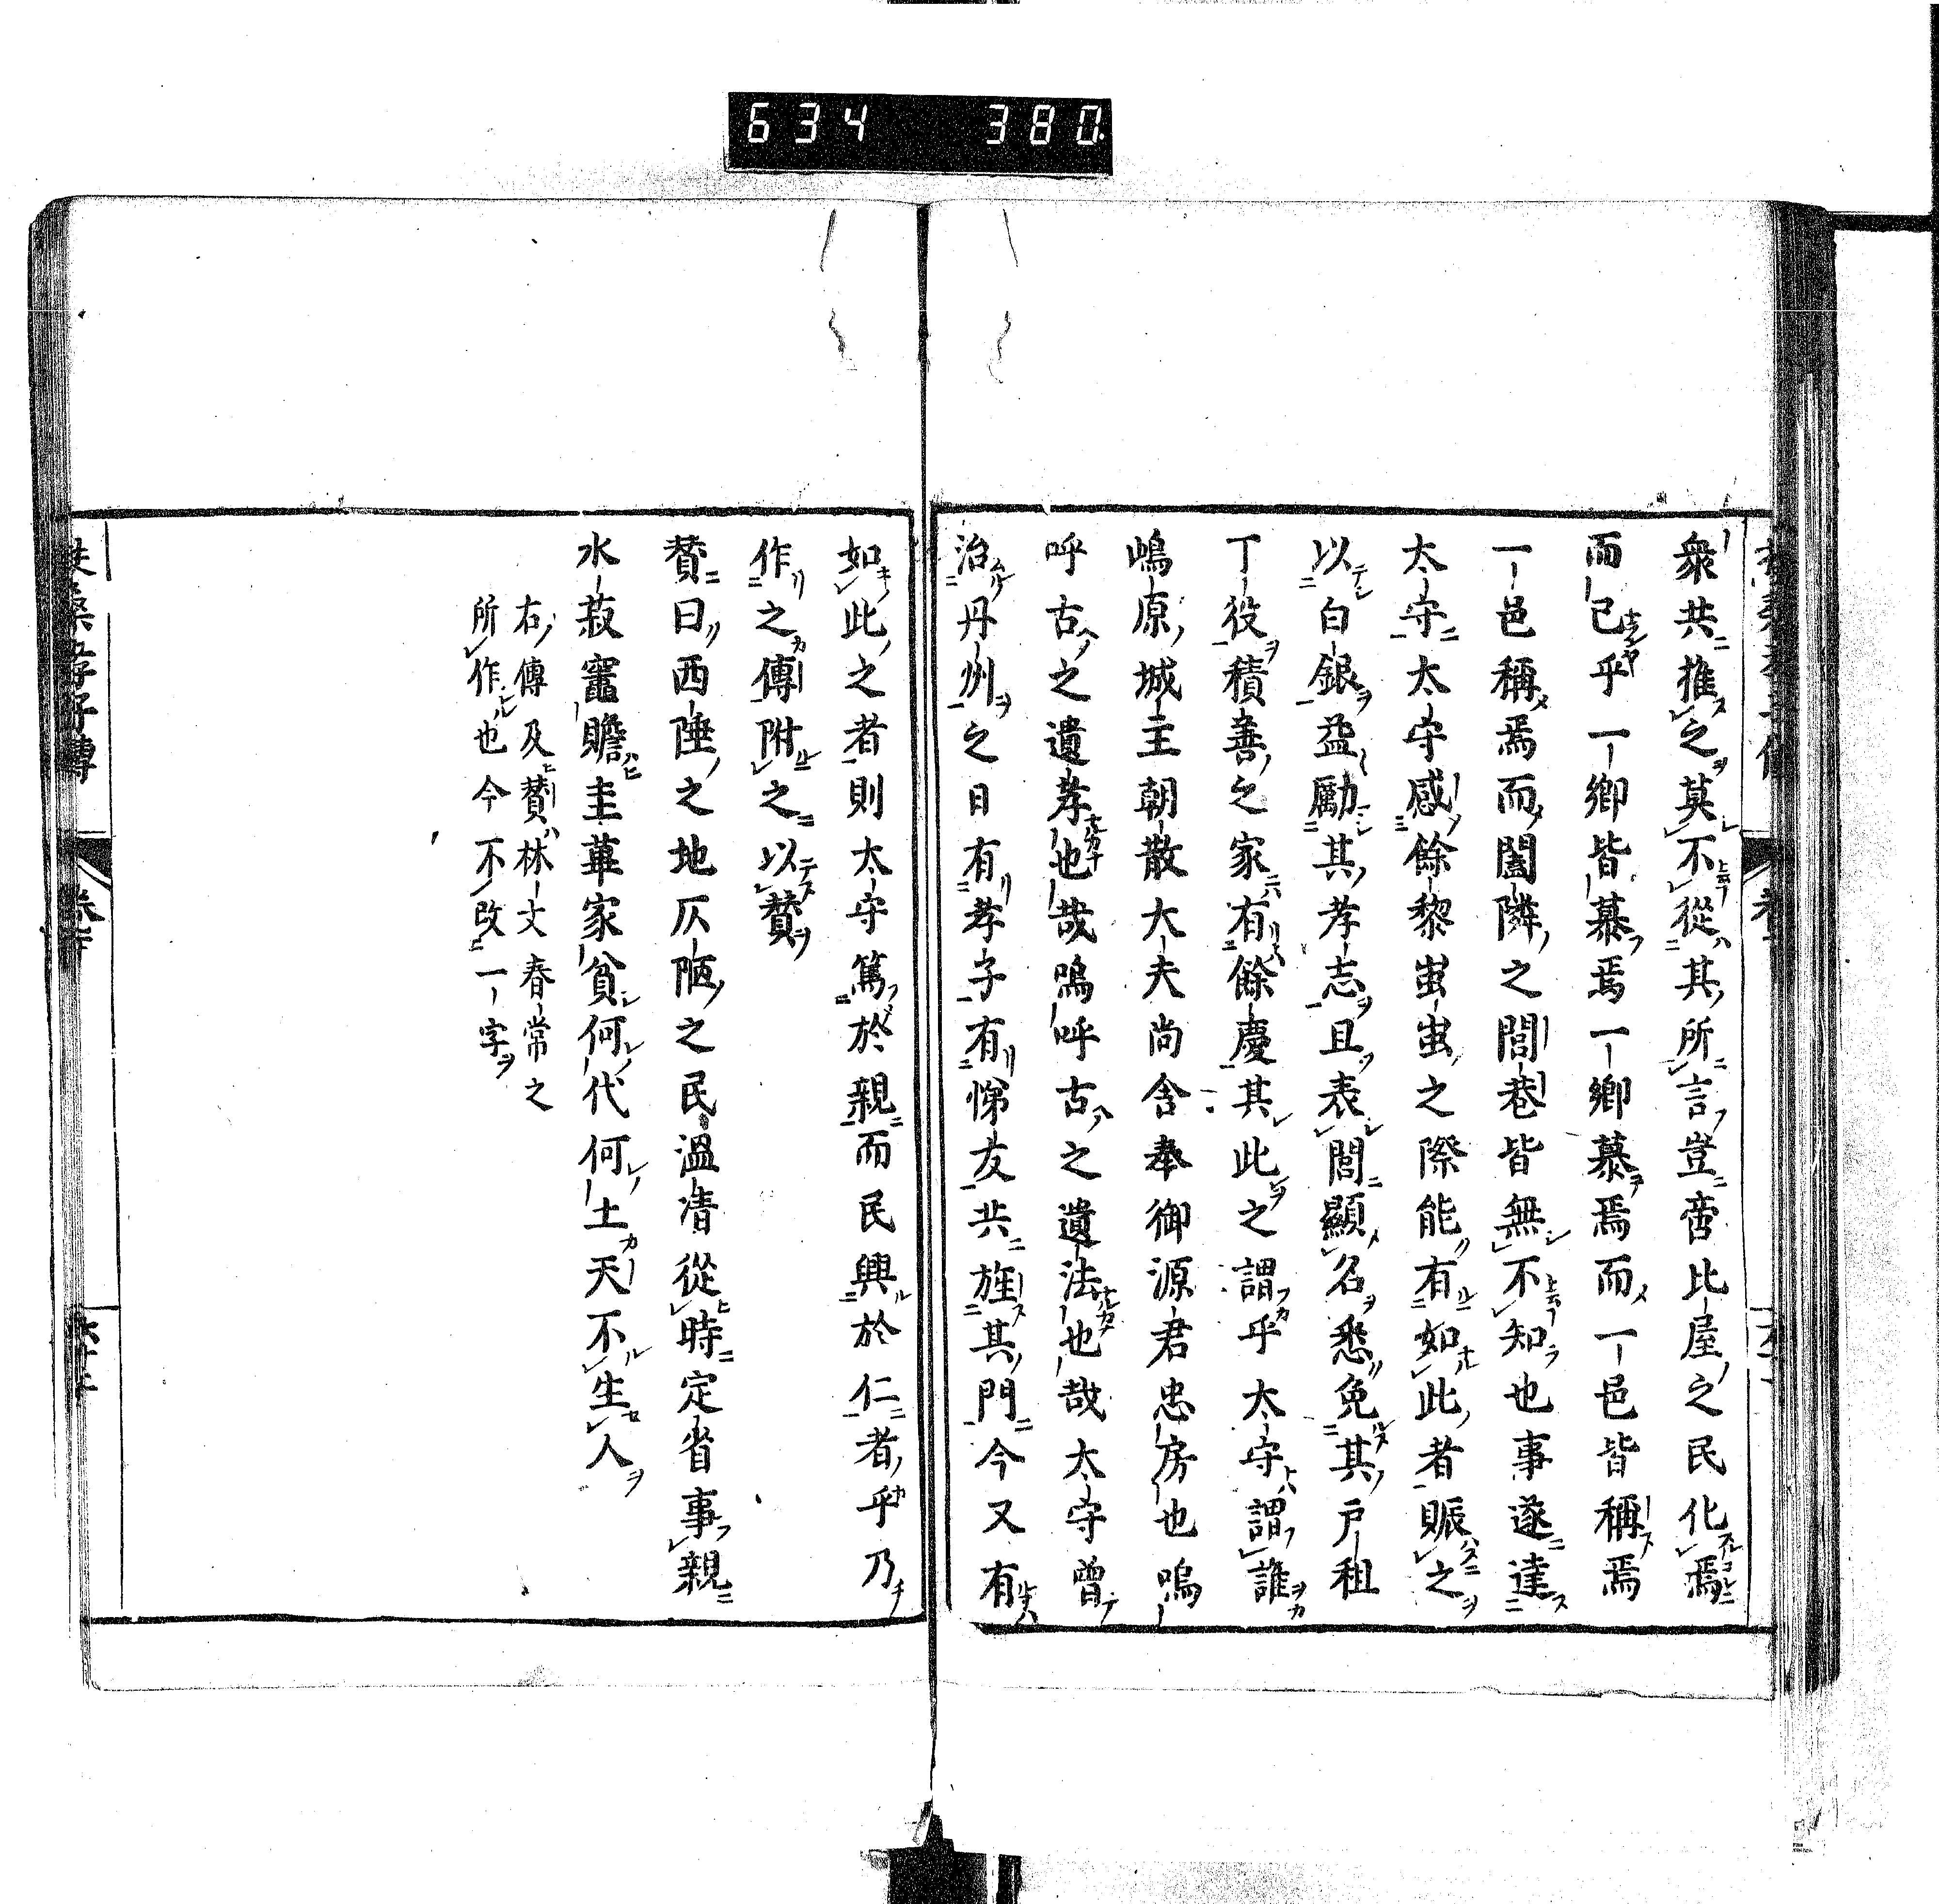 634 380
衆共推之莫不從其所言豈啻比屋之民化焉
而已乎一鄉皆慕焉一鄉慕焉而一邑皆稱焉
一邑稱焉而闔隣之閭巷皆無不知也事遂達
太守太守感餘黎蚩蚩之際能有如此者賑之
以白銀益勵其孝志且表閭顯名悉免其戸租
丁役積善之家有餘慶其此之謂乎太守謂誰
嶋原城主朝散大夫尚舍奉御源君忠房也嗚
呼古之遺孝也哉嗚呼古之遺法也哉太守曾
治丹州之日有孝子有悌友共旌其門今又有
如此之者則太守篤於親而民興於仁者乎乃
作之傳附之以賛
賛曰西陲之地仄陋之民溫凊從時定省事親
水菽竈贍圭蓽家貧何代何土天不生人
右傳及賛林丈春常之
所作也今不改一字
扶桑孝子傳